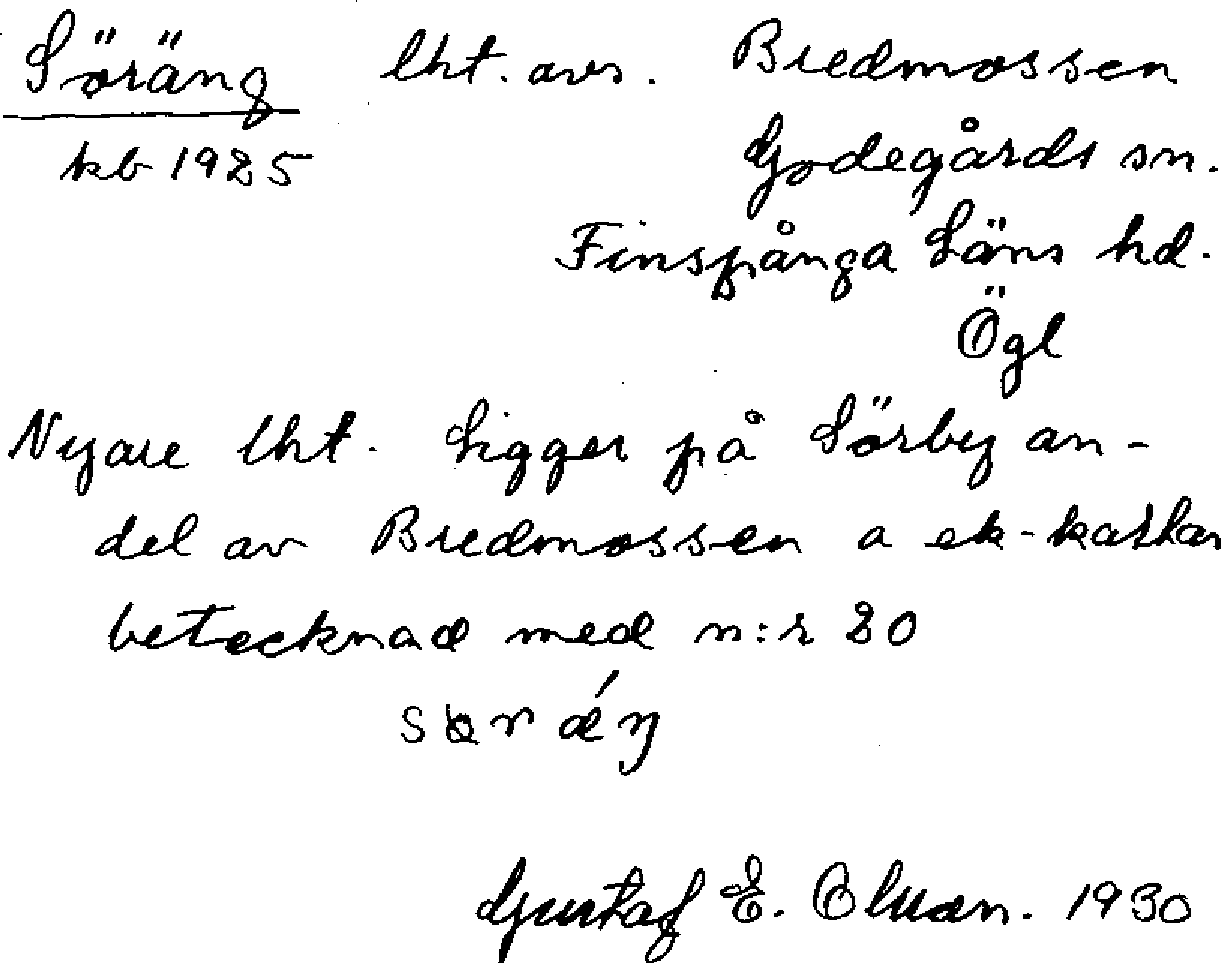 Söräng lht. avs. Bredmossen
kb 1925 Godegårds sn.
Finspånga Läns hd.
Ögl
Nyare lht. Ligger på Sörby an-
del av Bredmossen a ek-kartan
betecknad med n:r 20
Gustaf E. Olsson. 1930